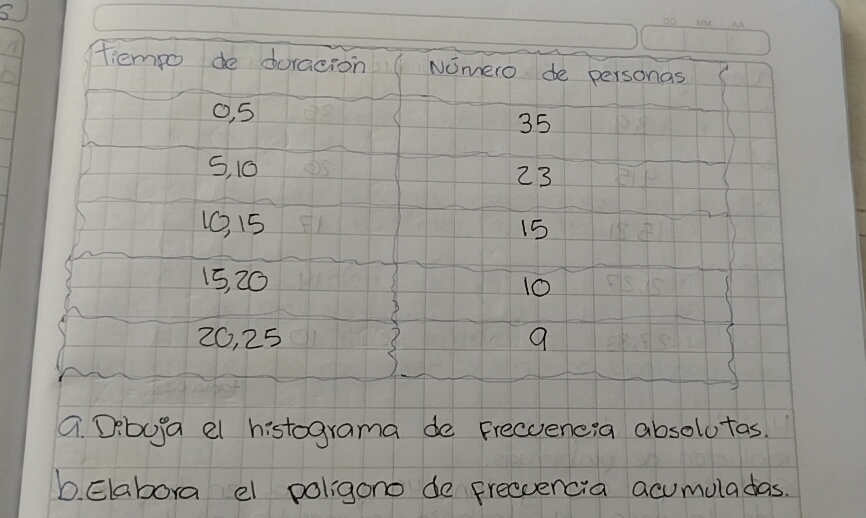 DD MM AA
Tiempo de duración Número de personas
0,5 35
5,10 23
10,15 15
15,20 10
20,25 9
a. Dibuja el histograma de frecuencia absolutas.
b. Elabora el poligono de frecuencia acumuladas.